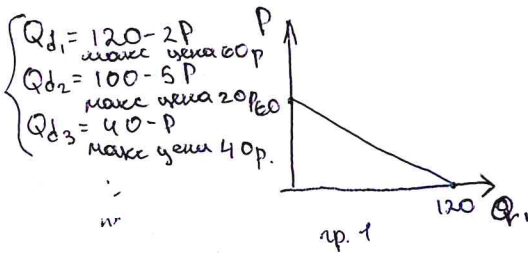 Qd₁ = 120 - 2P
макс цена 60 р
Qd₂ = 100 - 5P
макс цена 20р
Qd₃ = 40 - P
макс цена 40р.
P
60
120
Q₁
гр. 1